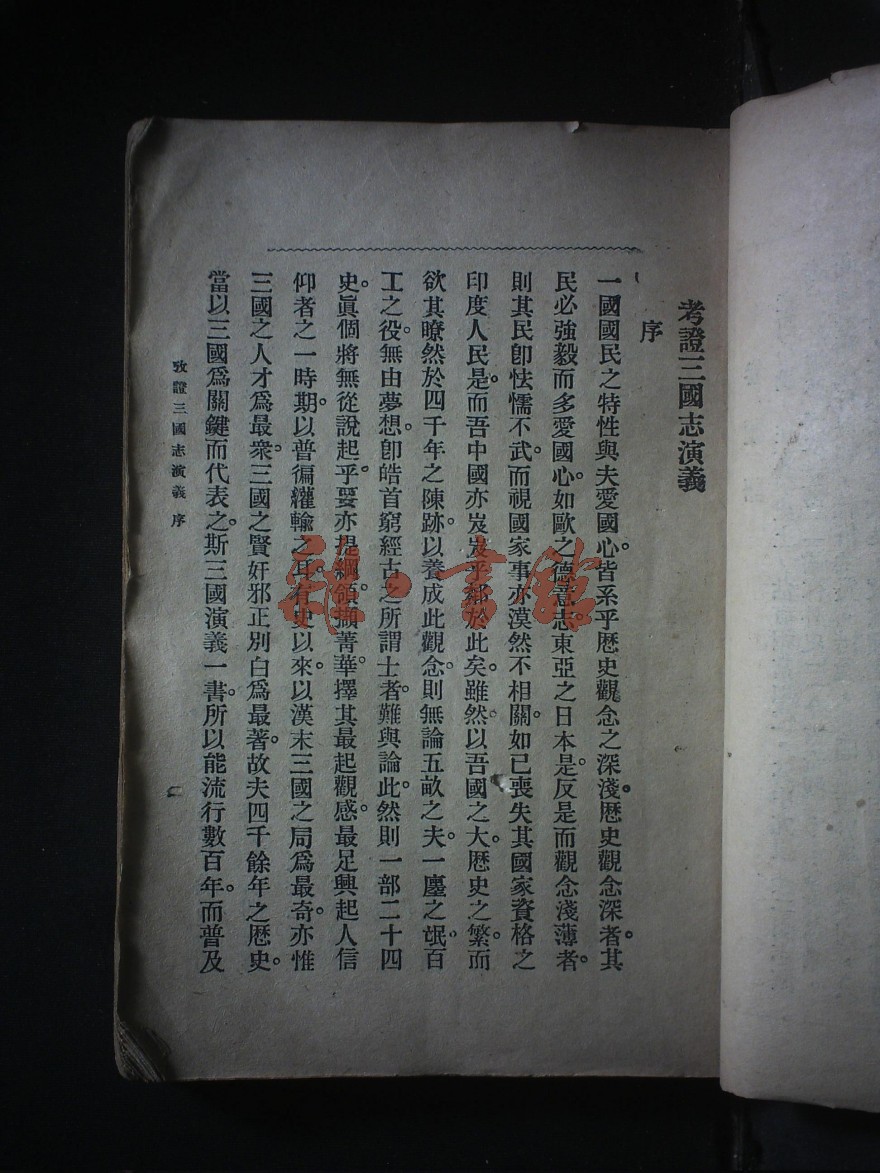 考證三國志演義
序
一國國民之特性與夫愛國心。皆系乎歷史觀念之深淺。歷史觀念深者。其
民必強毅而多愛國心。如歐之德意志東亞之日本是。反是而觀念淺薄者。
則其民卽怯懦不武。而視國家事亦漠然不相關。如已喪失其國家資格之
印度人民是。而吾中國亦岌岌乎鄰於此矣。雖然以吾國之大。歷史之繁。而
欲其瞭然於四千年之陳跡。以養成此觀念。則無論五畝之夫。一廛之氓。百
工之役。無由夢想。卽皓首窮經古之所謂士者。難與論此。然則一部二十四
史。眞個將無從說起乎。要亦提綱領。擷菁華。擇其最起觀感。最足興起人信
仰者之一時期。以普徧灌輸之耳。有史以來。以漢末三國之局爲最奇。亦惟
三國之人才爲最衆。三國之賢奸邪正別白爲最著。故夫四千餘年之歷史。
當以三國爲關鍵而代表之。斯三國演義一書。所以能流行數百年。而普及
攷證三國志演義 序
雜·書館